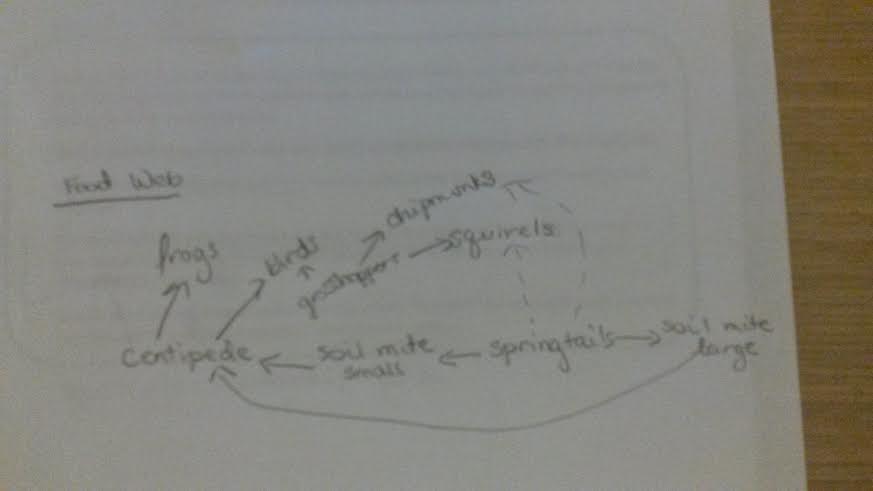 Food Web
chipmunks
frogs
birds
squirrels
grasshoppers
centipede
soil mite
small
springtails
soil mite
large